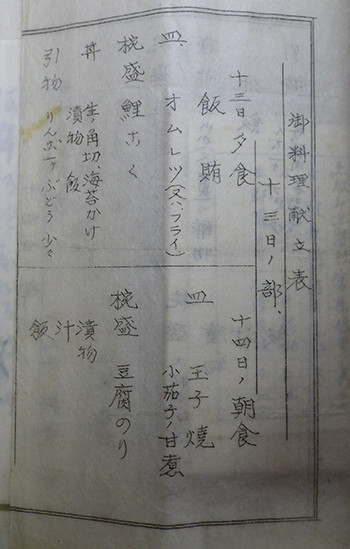 御料理献立表
十三日ノ部、
十三日夕食
飯賄
皿、オムレツ(又ハフライ)
椀盛 鯉こく
丼 生ノ角切、海苔かけ
漬物 飯
引物 ぶどう少々
十四日ノ朝食
皿 玉子焼
小茄子ノ甘煮
椀盛 豆腐のり
漬物
汁
飯